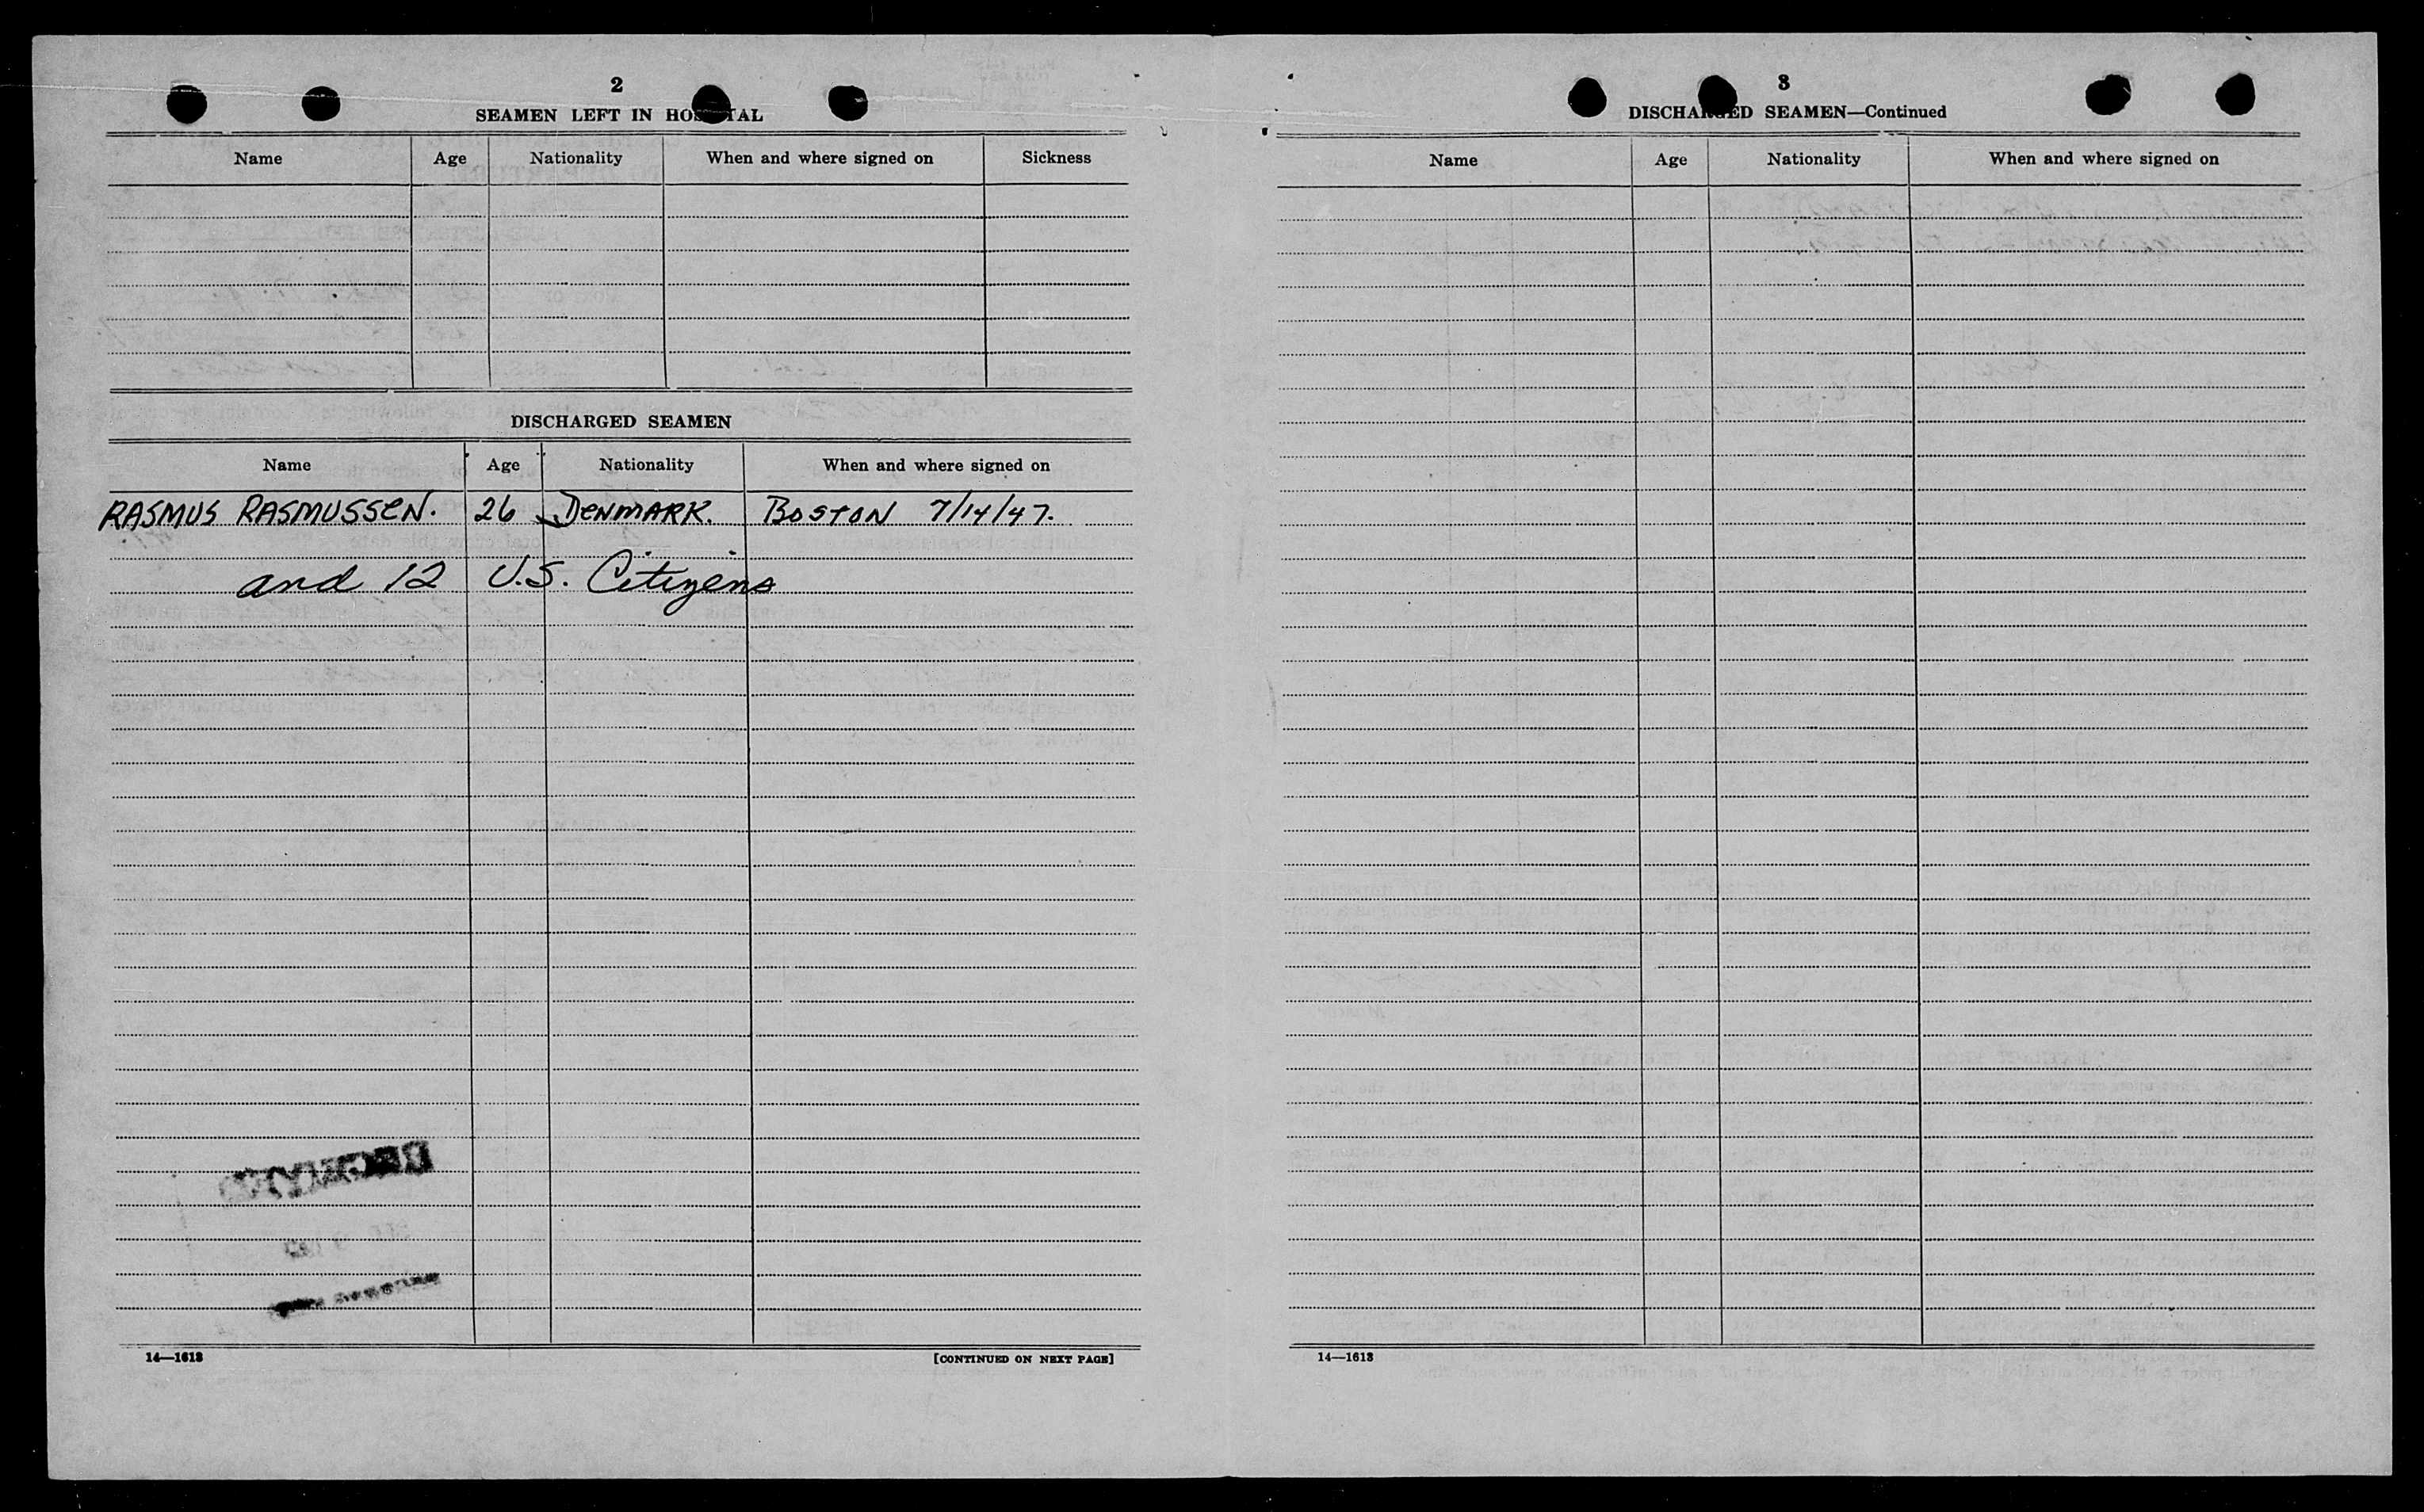 2
SEAMEN LEFT IN HOSPITAL
Name Age Nationality When and where signed on Sickness
DISCHARGED SEAMEN
Name Age Nationality When and where signed on
RASMUS RASMUSSEN. 26 DENMARK. BOSTON 7/14/47.
and 12 U.S. Citizens
14—1613
[CONTINUED ON NEXT PAGE]
3
DISCHARGED SEAMEN—Continued
Name Age Nationality When and where signed on
14—1613